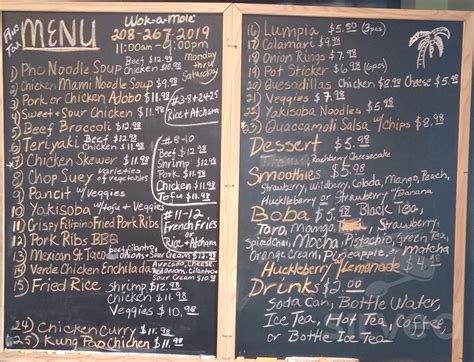 Plus Tax
MENU
Wok-a-Mole'
208-267-2019
11:00am - 9:00pm
Monday thru Saturday
1) Pho Noodle Soup Beef $12.98 Chicken $11.98
2) Chicken Mami Noodle Soup $11.98
3) Pork or Chicken Adobo $11.98
4) Sweet + Sour Chicken $11.98
#3-8+24-25
Rice + Atchara
5) Beef Broccoli $12.98
6) Teriyaki Beef $12.98 Chicken $11.98
7) Chicken Skewer $11.98
8) Chop Suey Varieties of Vegetables
9) Pancit w/Veggies
10) Yakisoba w/Veggies
#8-10
Beef $12.98
Shrimp $12.98
Pork $11.98
Chicken $11.98
Tofu $11.98
11) Crispy Filipino Fried Pork Ribs
12) Pork Ribs BBQ
#11-12
French Fries
or
Rice + Atchara
13) Mexican St. Taco Beef, Cilantro, Onions + Sour Cream $12.98
14) Verde Chicken Enchilada Avocado, Cheese, Red onion, Cilantro + Sour Cream $12.98
15) Fried Rice Shrimp $12.98
Chicken $11.98
Veggies $10.98
24) Chicken Curry $11.98
25) Kung Pao Chicken $11.98
16) Lumpia $5.50 (3pcs)
17) Calamari $9.98
18) Onion Rings $7.98
19) Pot Sticker $6.98
20) Quesadillas Chicken $8.98 Cheese $5.98
21) Veggies $7.98
22) Yakisoba Noodles $5.98
23) Quaccamoli Salsa w/Chips $8.98
Dessert
Raspberry Cheesecake
Smoothies $5.98
Strawberry, Wildberry, Colada, Mango, Peach,
Huckleberry or Strawberry + Banana
Boba $5.98 Black Tea,
Taro, Mango, Strawberry,
Spiced Chai, Mocha, Pistachio, Green Tea,
Orange Cream, Pineapple, Matcha
Huckleberry Lemonade
Drinks $2.00
Soda Can, Bottle Water,
Ice Tea, Hot Tea, Coffee,
or Bottle Ice Tea